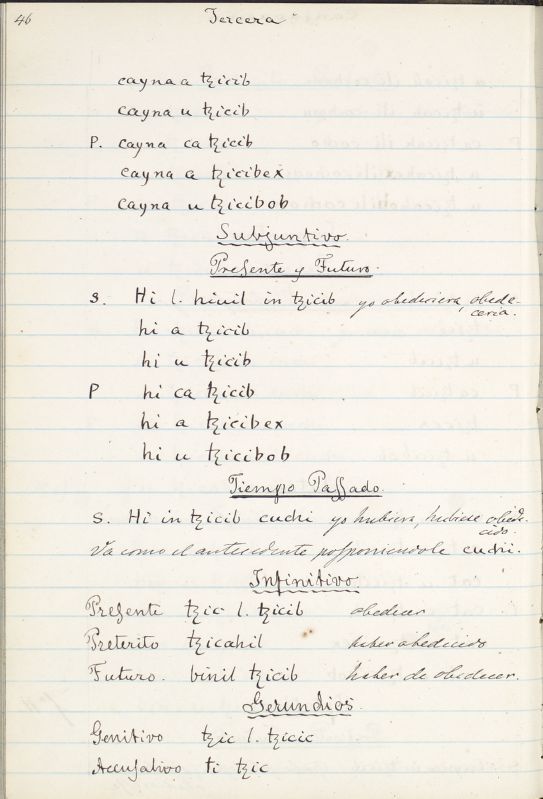 46
Tercera
cayna a tzicib
cayna u tzicib
P. cayna ca tzicib
cayna a tzicibex
cayna u tzicibob
Subjuntivo.
Presente y Futuro.
S. Hi l. hiuil in tzicib yo obedeciera, obede-
ceria.
hi a tzicib
hi u tzicib
P hi ca tzicib
hi a tzicibex
hi u tzicibob
Tiempo Passado.
S. Hi in tzicib cuchi yo hubiera, hubiese obede-
cido.
Va como el antecedente posponiendole cuchi.
Infinitivo.
Presente tzic l. tzicib obedecer
Preterito tzicahil haber obedecido
Futuro. binil tzicib haber de obedecer.
Gerundios
Genitivo tzic l. tzicic
Accusativo ti tzic